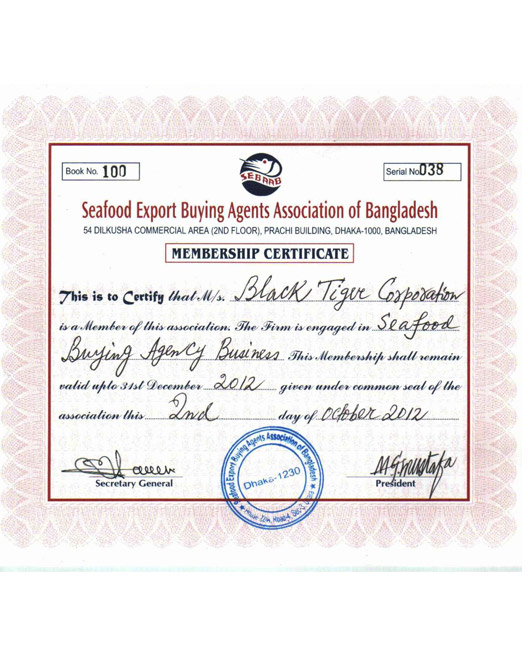 Book No. 100
Serial No 038
SEBAAB
Seafood Export Buying Agents Association of Bangladesh
54 DILKUSHA COMMERCIAL AREA (2ND FLOOR), PRACHI BUILDING, DHAKA-1000, BANGLADESH
MEMBERSHIP CERTIFICATE
This is to Certify that M/s. Black Tiger Corporation
is a Member of this association. The Firm is engaged in Seafood
Buying Agency Business This Membership shall remain
valid upto 31st December 2012 given under common seal of the
association this 2nd day of October 2012
Secretary General
President
Seafood Export Buying Agents Association of Bangladesh
Dhaka-1230